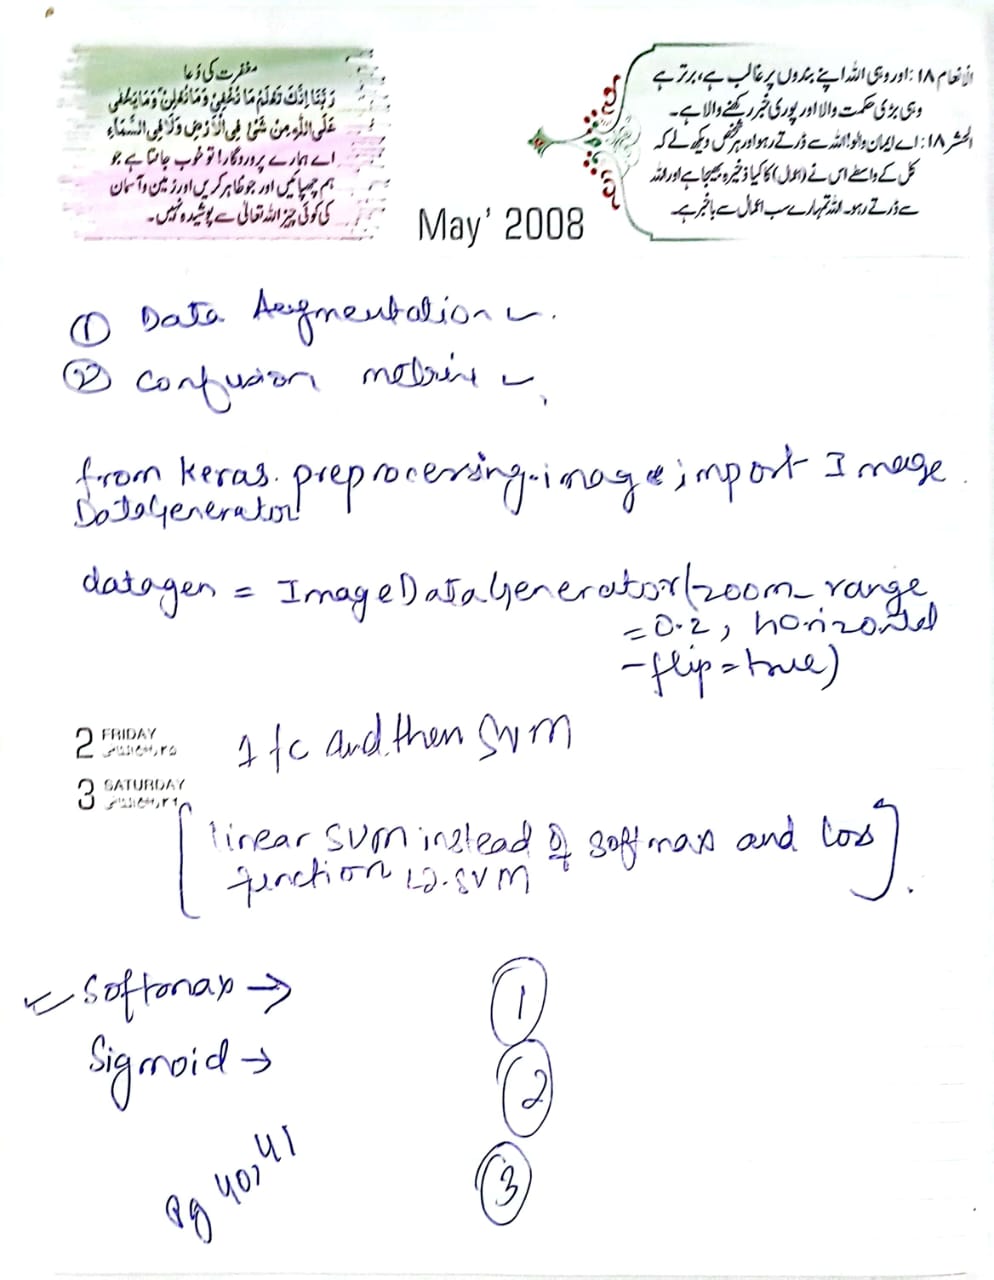 مغفرت کی دُعا
رَبَّنَا اِنَّكَ تَعْلَمُ مَا نُخْفِیْ وَمَا نُعْلِنُ وَمَا یَخْفٰی
عَلَی اللّٰہِ مِنْ شَیْءٍ فِی الْاَرْضِ وَلَا فِی السَّمَاءِ
اے ہمارے پروردگار! تو خوب جانتا ہے جو
ہم چھپائیں اور جو ظاہر کریں اور زمین و آسمان
کی کوئی چیز اللہ تعالیٰ سے پوشیدہ نہیں۔
الانعام ۱۸: اور وہی اللہ اپنے بندوں پر غالب ہے، برتر ہے
وہی بڑی حکمت والا اور پوری خبر رکھنے والا ہے۔
الحشر ۱۸: اے ایمان والو! اللہ سے ڈرتے رہو اور ہر شخص دیکھ لے کہ
کل کے واسطے اس نے (اعمال) کا کیا ذخیرہ بھیجا ہے اور اللہ
سے ڈرتے رہو۔ اللہ تمہارے سب اعمال سے باخبر ہے۔
May' 2008
① Data Augmentation
② Confusion metrix
from keras.preprocessing.image import Image
DataGenerator
datagen = ImageDataGenerator(zoom_range
=0.2, horizontal
-flip=true)
2 FRIDAY
1 fc and then SVM
3 SATURDAY
[linear SVM instead of softmax and loss
function L2.SVM].
Softmax →
①
Sigmoid →
②
③
Pg 40, 41